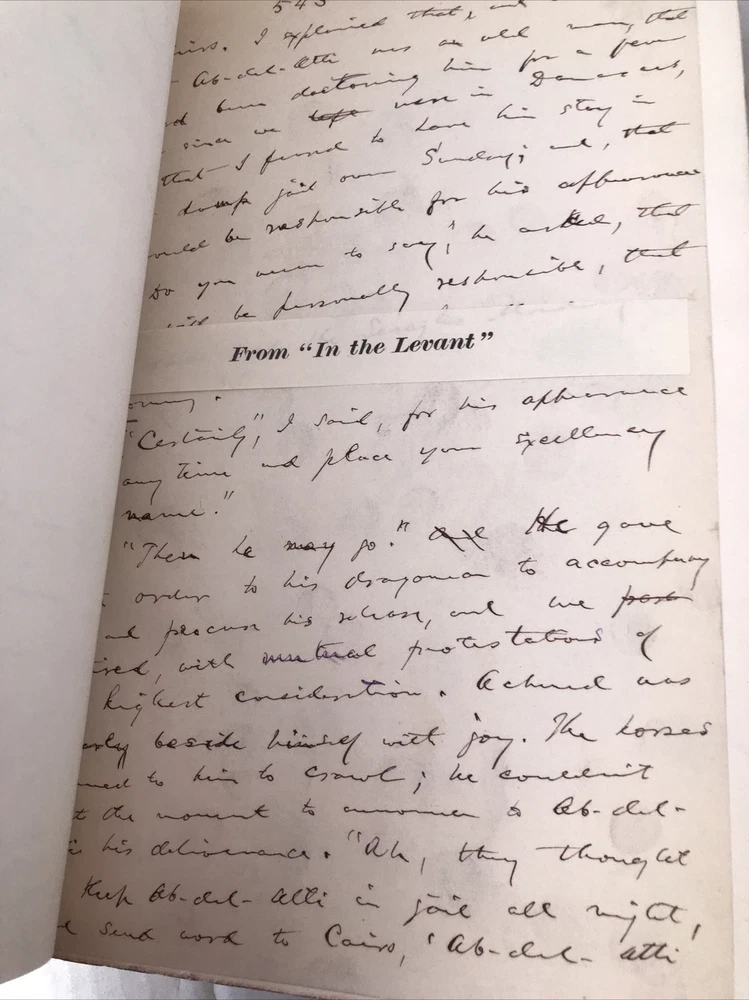 543
I explained that, and
Ab-del-Atti was an old man, that
been doctoring him for a few
since we left were in Damascus,
that I feared to have him stay in
damp jail over Sunday; and, that
ould be responsible for his appearance
Do you mean to say," he asked, that
be personally responsible, that
From "In the Levant"
"Certainly," I said, for his appearance
any time and place your excellency
name."
"Then he may go." and He gave
order to his dragoman to accompany
and procure his release, and we part
ired, with mutual protestations of
highest consideration. Achmed was
arly beside himself with joy. The horses
med to him to crawl; he couldn't
t the moment to announce to Ab-del-
his deliverance. "Ah, they thought
Keep Ab-del-Atti in jail all night,
send word to Cairo, 'Ab-del-Atti